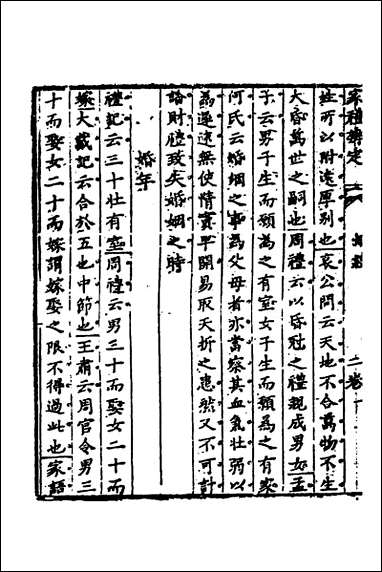 家禮辨定 婚 二卷
姓所以附遠厚別也哀公問云天地不合萬物不生
大昏萬世之嗣也周禮云以昏冠之禮親成男女孟
子云男子生而願為之有室女子生而願為之有家
何氏云婚姻之事為父母者亦當察其血氣壯弱以
為遲速無使情竇早開易取夭折之患然又不可計
論財禮致失婚姻之時
婚年
禮記云三十壯有室周禮云男三十而娶女二十而
嫁大戴記云合於五也中節也王肅云周官令男三
十而娶女二十而嫁謂嫁娶之限不得過此也家語